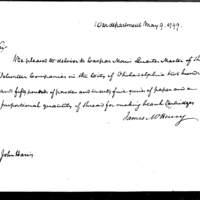 War department May 9. 1799.
Sir
Be pleased to deliver to Caspar Morris Quarter Master of the
Volunteer Companies in the City of Philadelphia hundred
and fifty pounds of powder and twenty five quires of paper and a
proportional quantity of thread for making blank Cartridges
James McHenry
John Harris